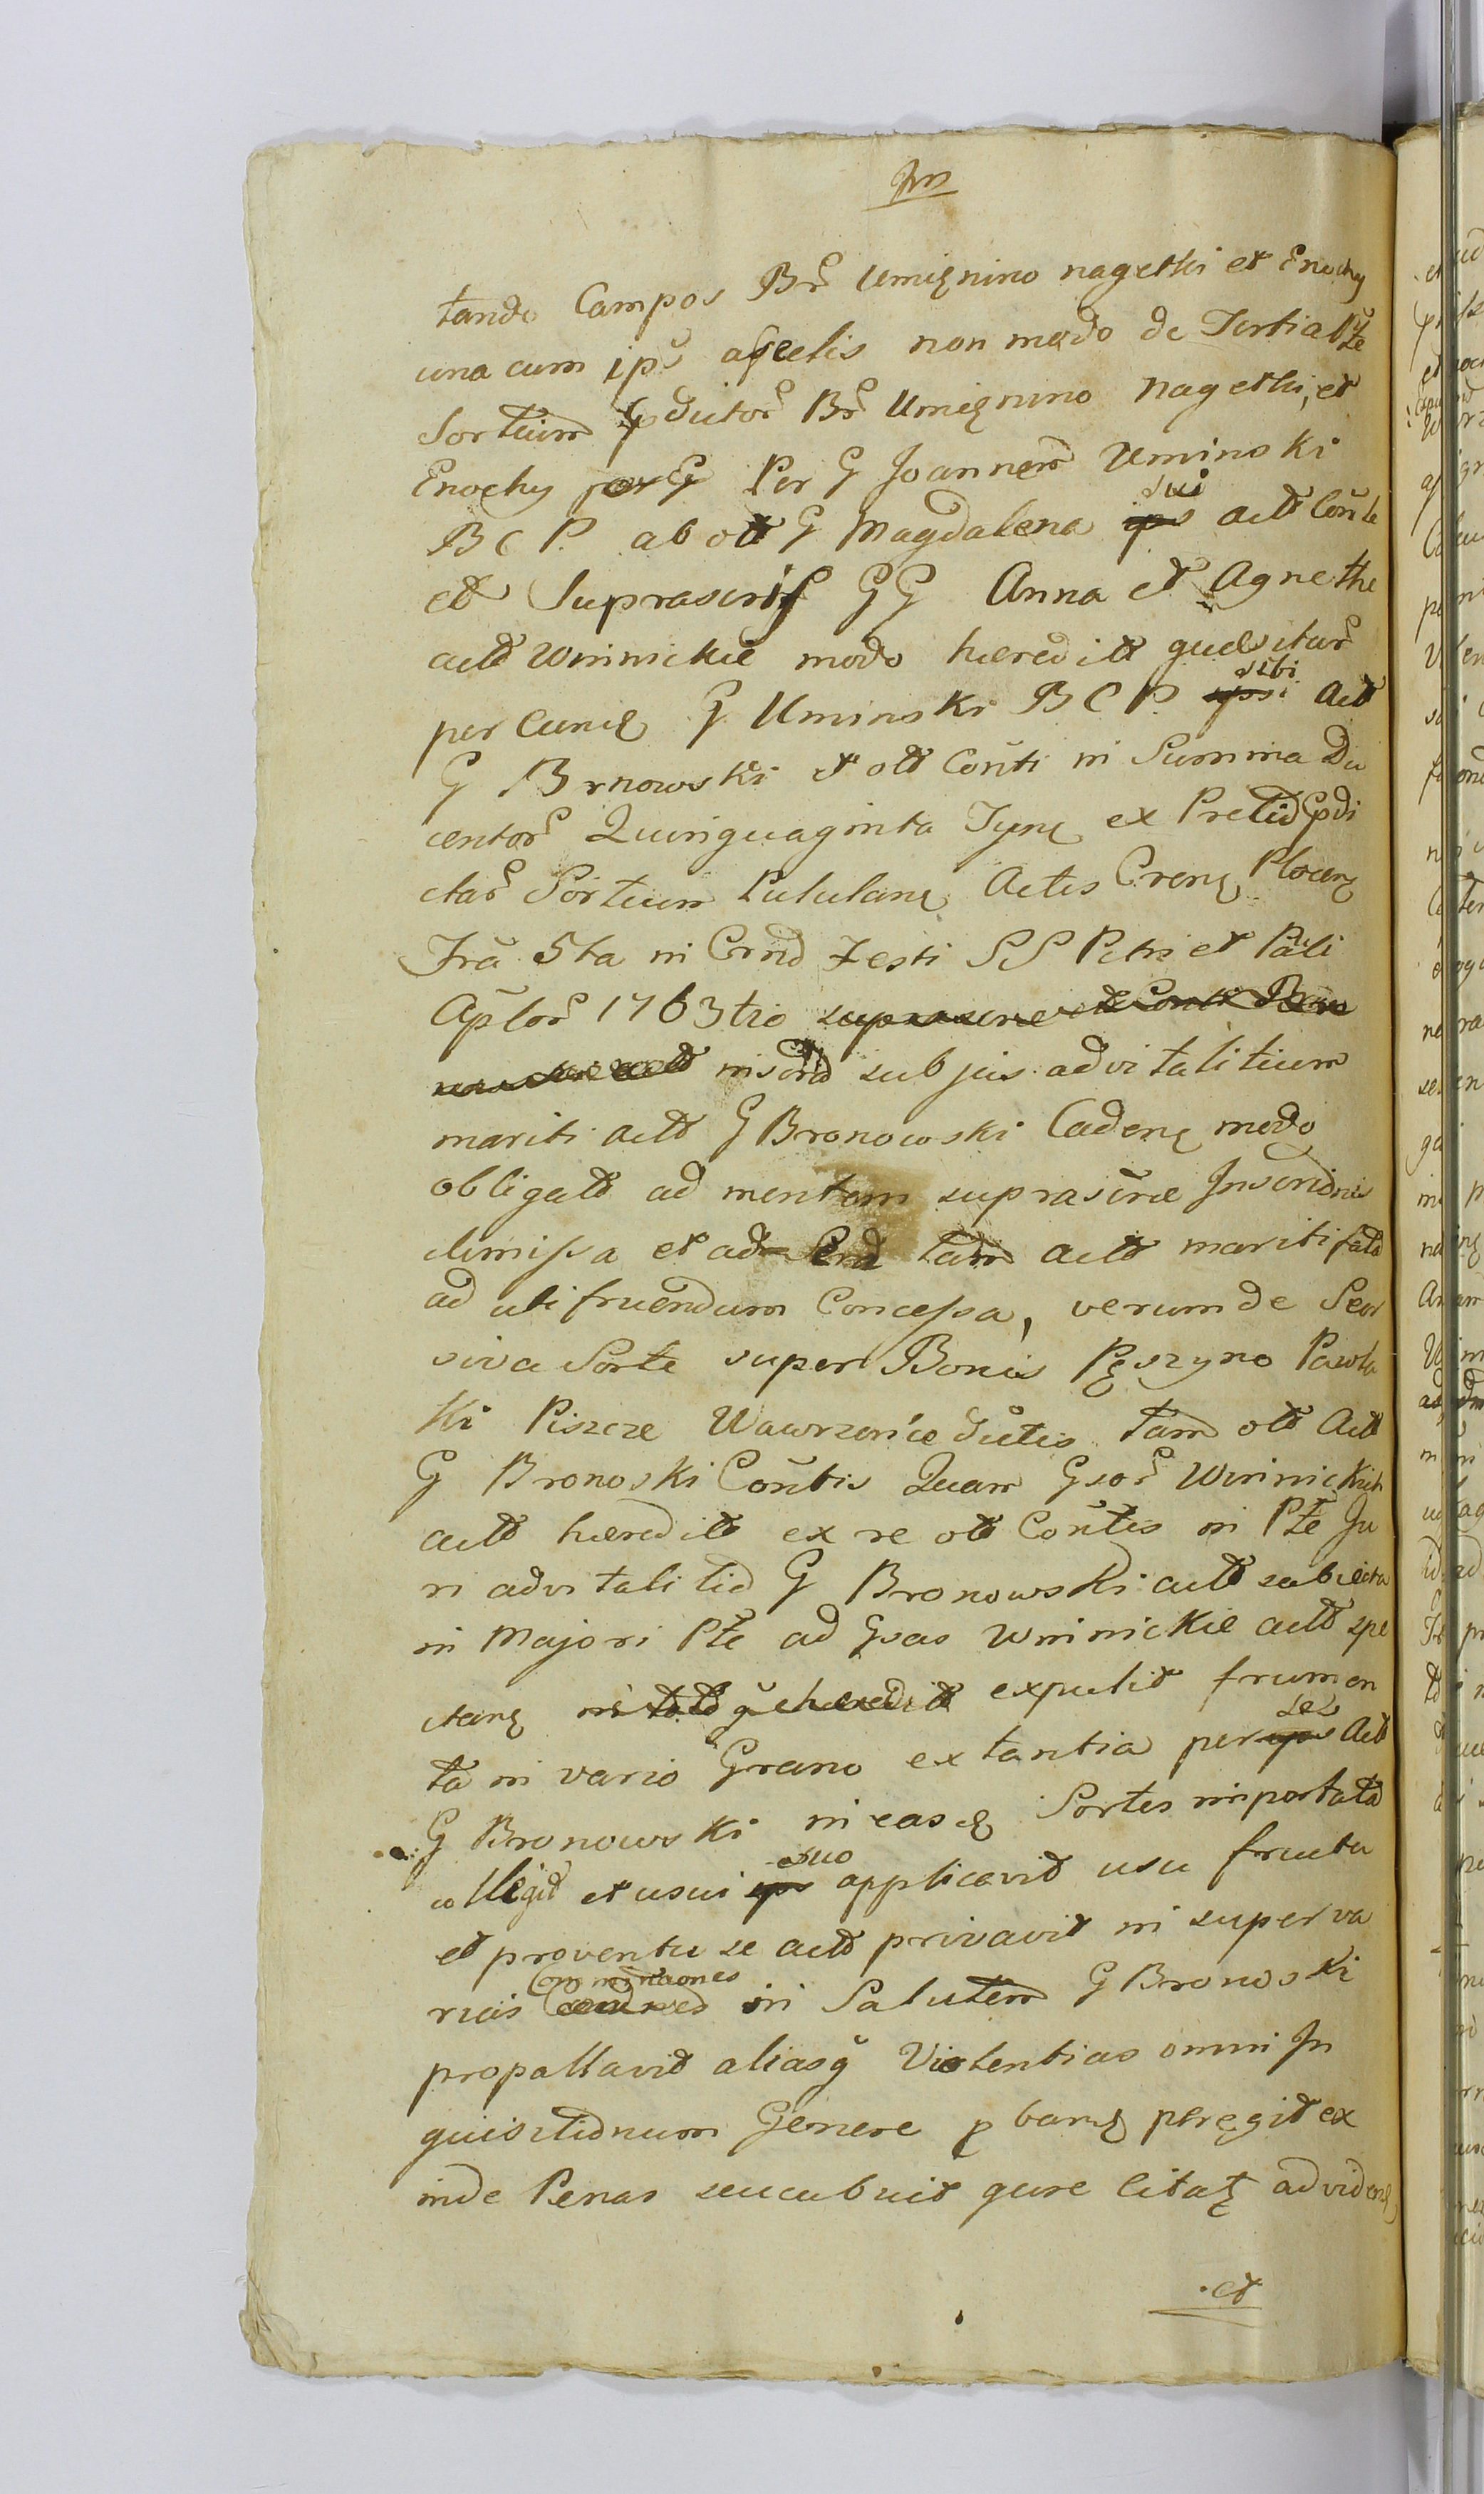 Im
tando Campos Br̃ Umięnino nagethi et Enochy
una cum ips agcelis non modo de Tertia Pte
Sortium dictor Br̃ Umięnino nagethi, et
Enochy Per G Joannem Uminski
B C P. ab ott G Magdalena sui actt Conte
et Suprascrip GG Anna et Agnethe
actt Winnickie modo hæreditt quesitar
per eunę G Uminski B C P. sibi Actt
G Brnowski et ott Conti in Summa Du
centor Quinquaginta Tynę ex Pretio pdi
ctar Sortium Lululanę Actis Crenę Plocenę
Fra 5ta in Crno Festi SS Petri et Pauli
Aplor 1763tio
inscrid sub jus advitalitium
mariti actt G Bronowski Cadenę modo
obligatt ad mentem suprascræ Inscridnis
dimissa et ad tam actt mariti
ad utifruendum Concessa, verum de Seor
siva Sorte super Bonis Pęszyno Pawło
Ki Piszcze Wawrzonce dictis tam ott Actt
G Bronoski Contis Quam Gsor Winnickich
actt hæreditt ex re ott Contis in Pte Ju
ri advitalitio G Bronowski actt subiecta
in Majori Pte ad Gsas Winnickie actt spe
ctanę expulit frumen
ta in vario Grano extantia per se Actt
G Bronowski in easdę Sortes importata
collegit et usui suo applicavit usu fructu
et proventu se actt privavit in super va
rias Comminaones in Salutem G Bronoski
propallavit aliasq Violentias omni In
quisitidnum Genere p banę peregit ex
inde Penas succubuit qure Citatę ad videnę
et